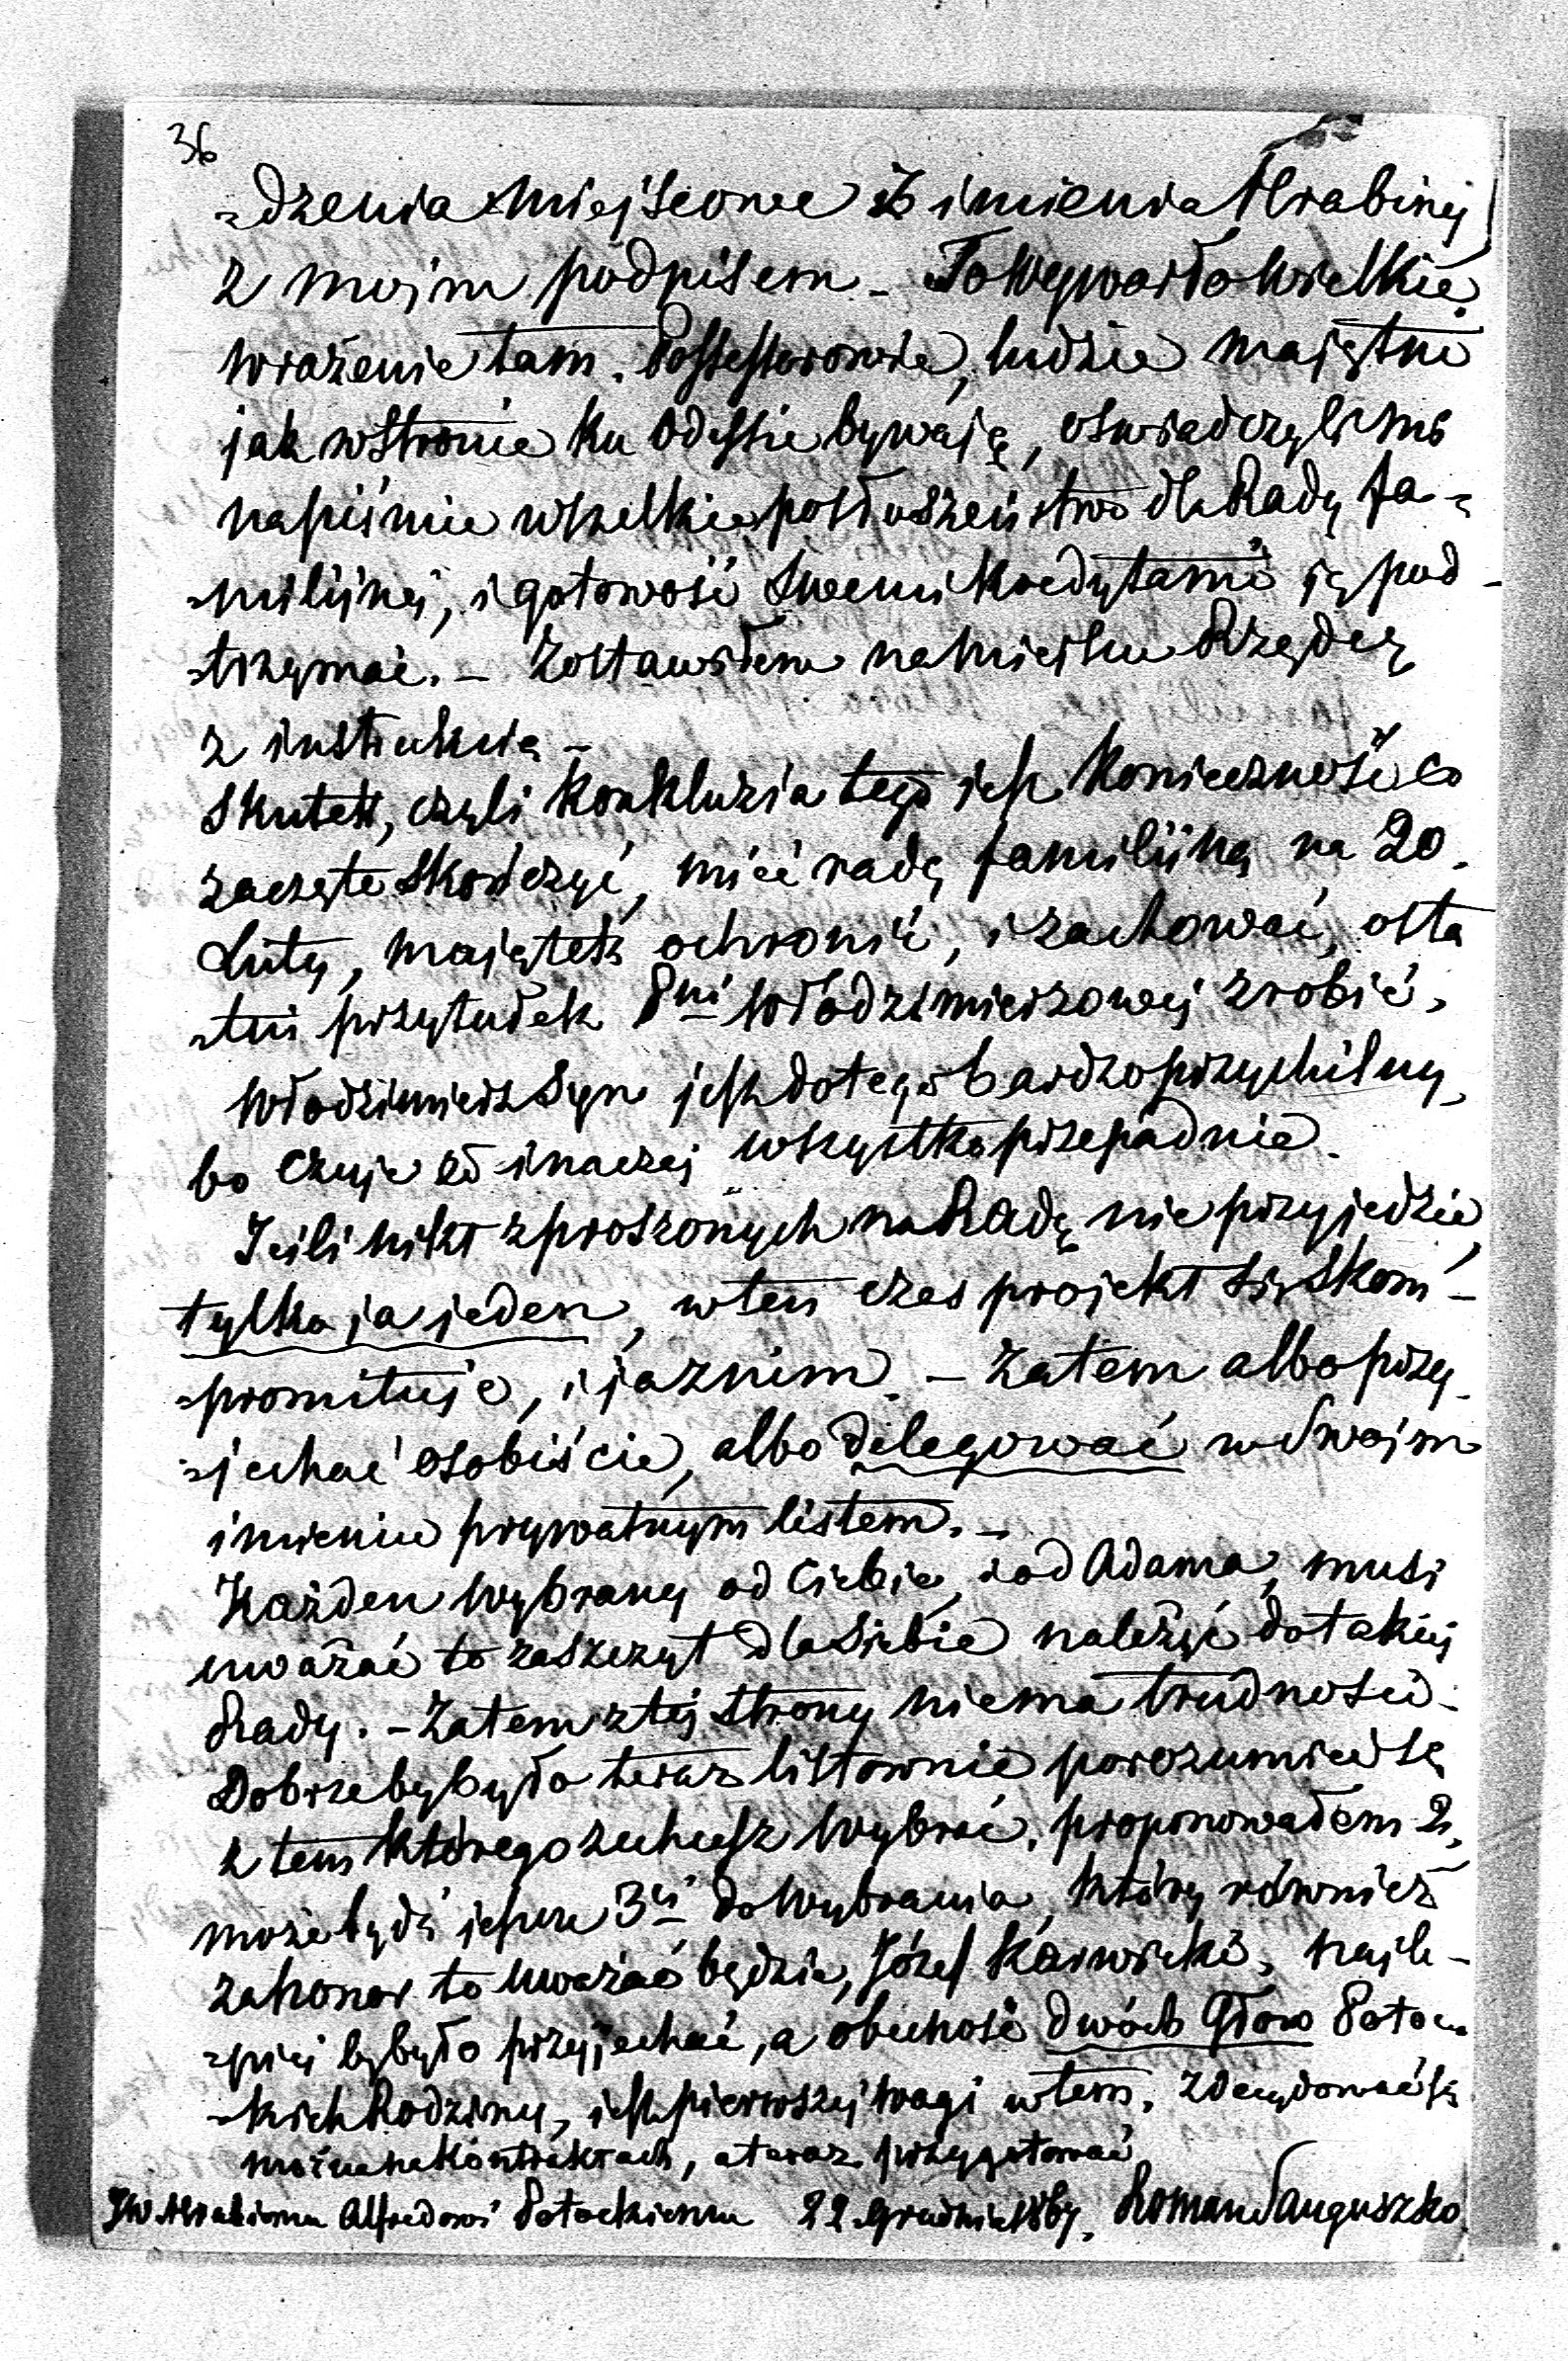 36
-dzenia miejscowe z imienia Hrabinej
z moim podpisem - To wywarło wielkie
wrażenie tam. Possessorowie, ludzie majętni
jak w stronie ku Odessie bywają, oswiadczyli mi
napiśmie wszelkie posłuszeństwo dla Rady fa-
-milijnej, i gotowość swemi kredytami ją pod-
-trzymać. - Zostawiłem na miejscu Rządcę
z instrukcią -
Skutek, czyli konkluzia tego jest konieczność co
zaczęte skończyć, mieć radę familijną na 20.
Luty, majątek ochronić, i zachować, osta
-tni przytułek Pni Włodzimierzowej zrobić,
Włodzimierz Syn jest do tego bardzo przychilny,
bo czuje że inaczej wszystko przepadnie.
Jeili nikt zproszonych na Radę nie przyjedzie,
tylko ja jeden, wten czas projekt się skom-
-promituje, i ja z nim. - Zatem albo przy-
-jechać osobiście, albo delegować w swojm
imieniu prywatnym listem. -
Każden wybrany od Ciebie, i od Adama, musi
uważać to zaszczyt dla siebie należyć do takiej
Rady. - Zatem z tej strony niema trudności -
Dobrze by było teraz listownie porozumieć się
z tem którego zechcesz wybrać, proponowałem 2,
może bydź jeszcze 3ci do wybrania, który również
za honor to uważać będzie, Józef Karwicki, najle-
-piej by było przyjechać, a obecność dwóch Głow Potoc-
-kich Rodziny, jest pierwszej wagi w tem. Zdecydować się
można na kontraktach, a teraz przygotować
JW Hrabiemu Alfredowi Potockiemu 22 Grudnia 1867. Roman Sanguszko